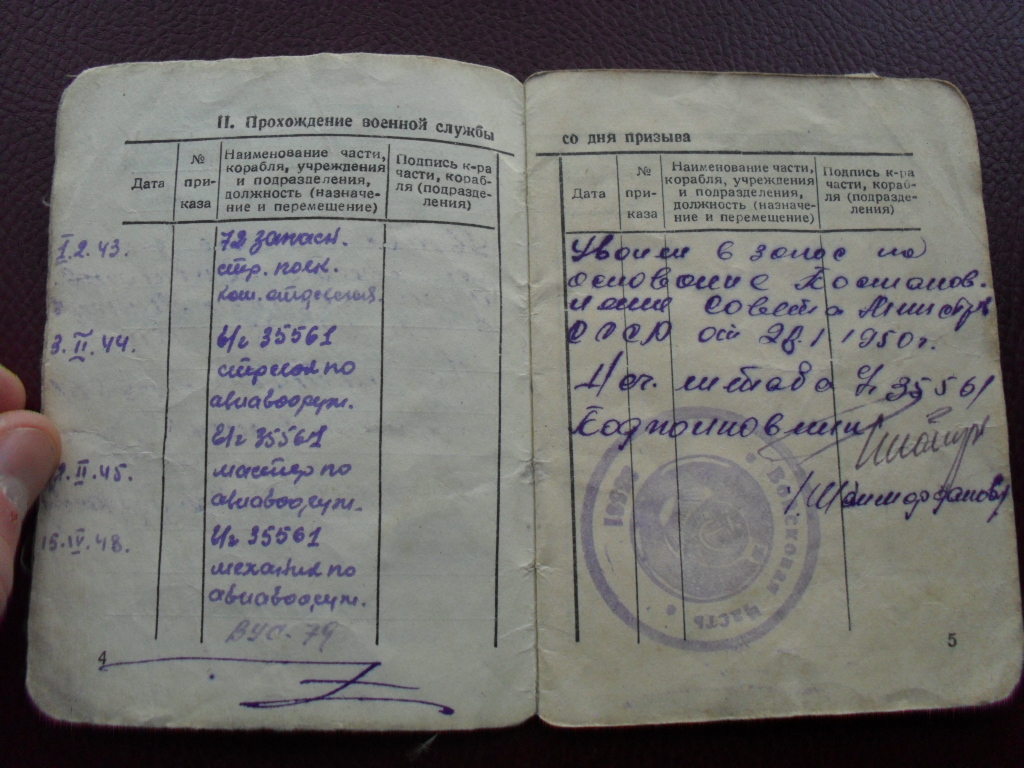 II. Прохождение военной службы
Дата
№ при- каза
Наименование части,
корабля, учреждения
и подразделения,
должность (назначе-
ние и перемещение)
Подпись к-ра
части, кораб-
ля (подразде-
ления)
I.2.43.
72 запасн.
стр. полк.
ком. отделения.
3.II.44.
в/ч 35561
стрелок по
авиавооруж.
в/ч 35561
2.II.45.
мастер по
авиавооруж.
15.IV.48.
в/ч 35561
механик по
авиавооруж.
ВУС-79
4
со дня призыва
Дата
№ при- каза
Наименование части,
корабля, учреждения
и подразделения,
должность (назначе-
ние и перемещение)
Подпись к-ра
части, кораб-
ля (подразде-
ления)
Уволен в запас на
основание Постанов-
ления Совета Министр
СССР от 28.1 1950г.
Нач. штаба в/ч 35561
Подполковник
/Шаймарданов/
Войсковая часть
35561
5